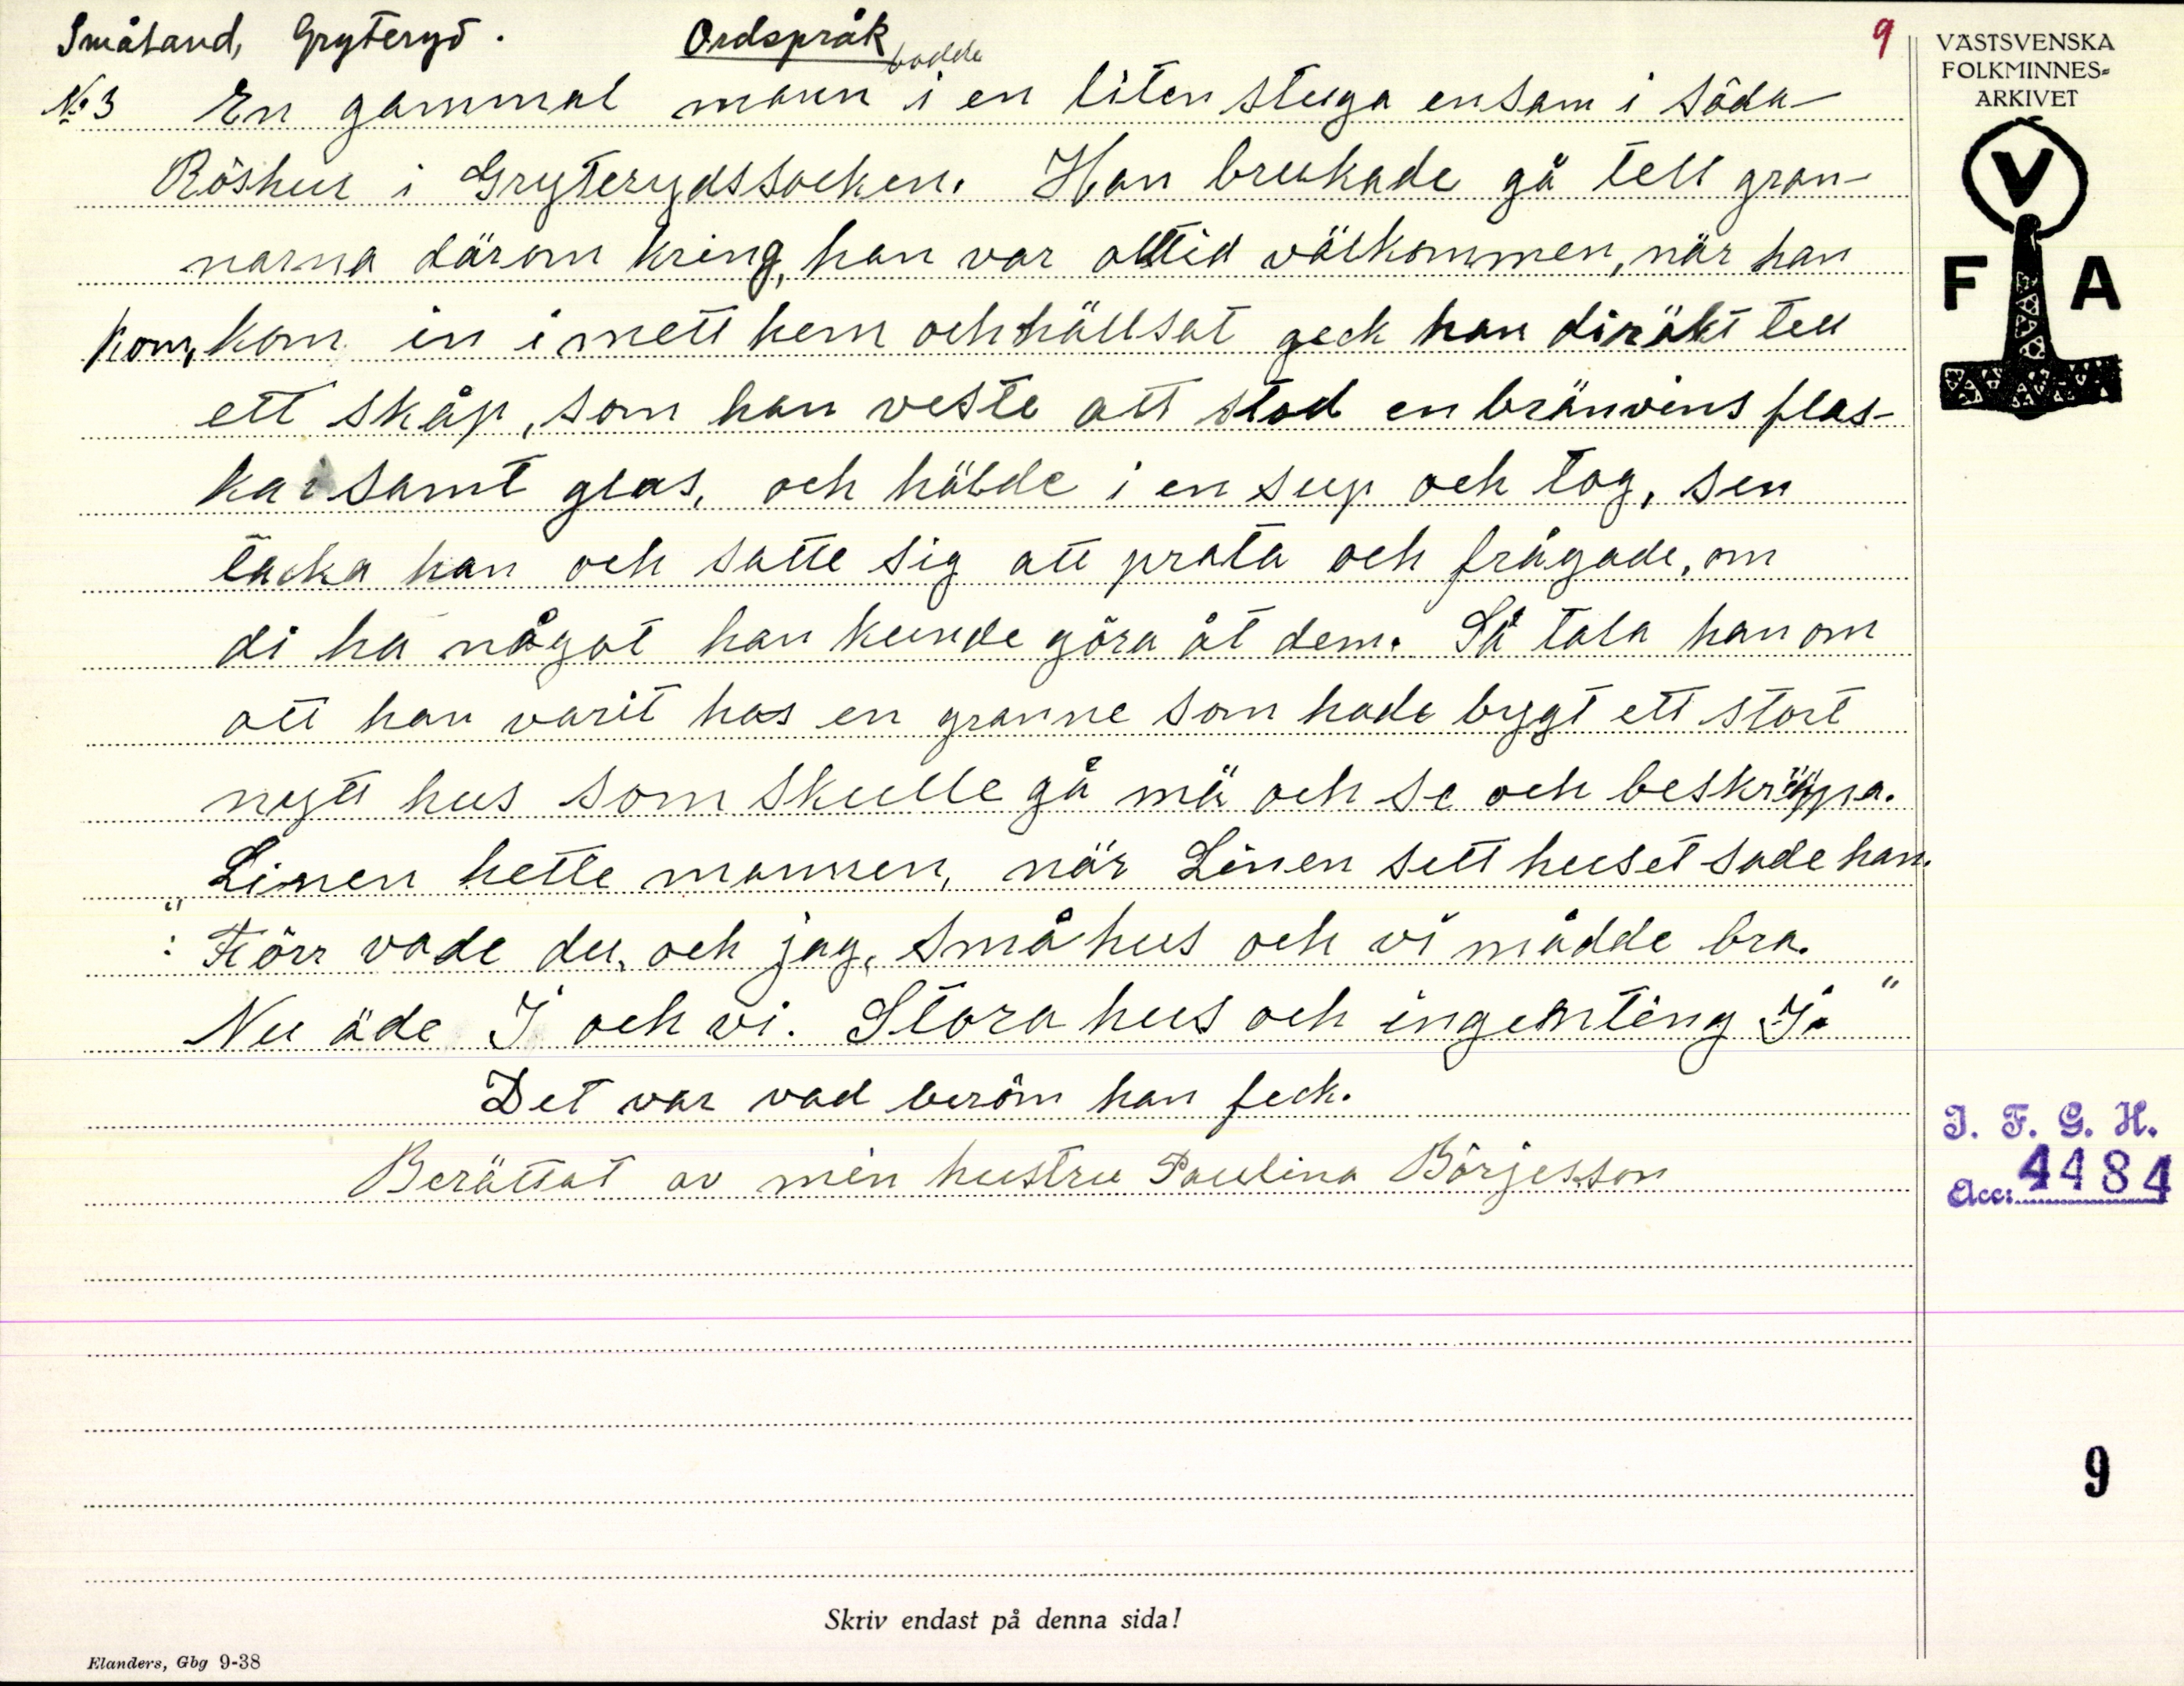 Småland, Gryteryd. Ordspråk 9
bodde
No 3 En gammal mann i en liten stuga ensam i Söda-
Röshur i Gryterydssocken. Han brukade gå tell gran-
narna därom kring, han var alltid välkommen, när han
kom, kom in i mett hem och hällsat geck han diräkt tell
ett skåp, som han veste att stod en bränvins flas-
ka i samt glas, och hälde i en sup och tog, sen
tacka han och satte sig att prata och frågade, om
di ha något han kunde göra åt dem. Så tala han om
att han varit hos en granne som hade bygt ett stort
nytt hus som skulle gå mä och se och beskräppa.
Linen hette mannen, när Linen sett huset sade han.
: "Förr vade du, och jag, små hus och vi mådde bra.
Nu äde I och vi. Stora hus och ingenting I."
Det var vad beröm han feck.
Berättat av min hustru Paulina Börjesson
Skriv endast på denna sida!
Elanders, Gbg 9-38
VÄSTSVENSKA
FOLKMINNES-
ARKIVET
V
F A
I. F. G. H.
Acc: 4484
9